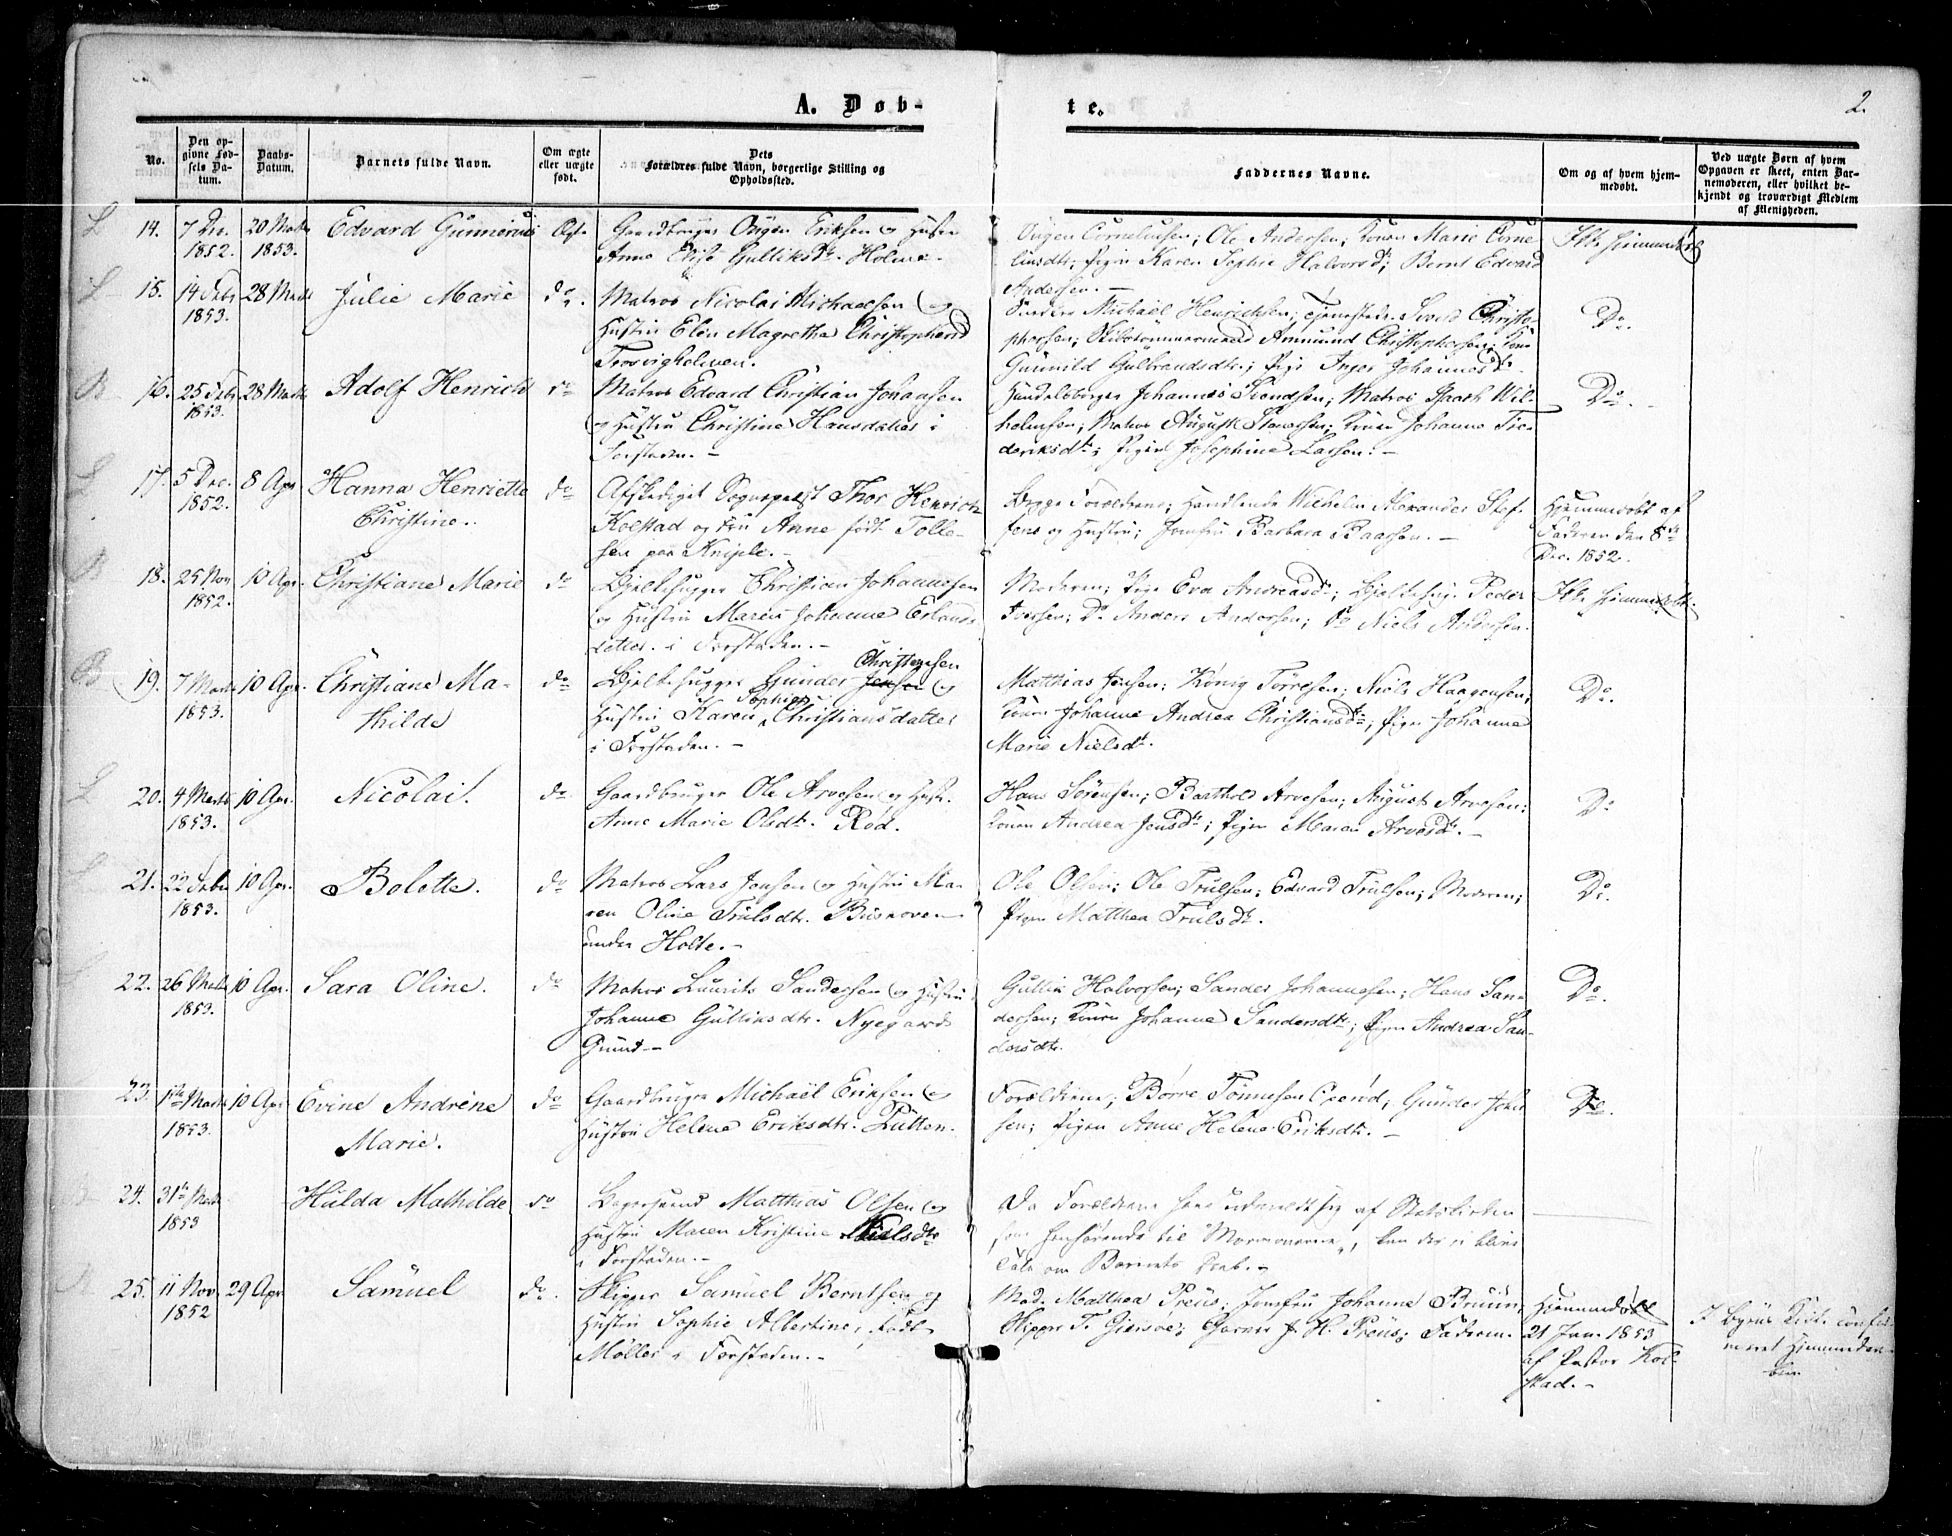 A. Døb-
te.
2.
No.
Den op-
givne Fød-
sels Da-
tum.
Daabs-
Datum.
Barnets fulde Navn.
Om ægte
eller uægte
født.
Dets
Forældres fulde Navn, borgerlige Stilling og
Opholdssted.
Faddernes Navne.
Om og af hvem hjem-
medøbt.
Ved uægte Børn af hvem
Opgaven er skeet, enten Bar-
nemoderen, eller hvilket be-
kjendt og troværdigt Medlem
af Menigheden.
14. 7 Dec. 1852. 20 Marts 1853. Edvard Gunnerius Ægte
Gaardbruger Ongen Eriksen og Hustru
Anne Elise Gulliksdtr. Holme.
Cornelius en; Ole Andersen; Konen Marie Corne
liusdtr; Pigen Karen Sophie Halvorsdtr; Bernt Edvard
Andersen. —
Ikke hjemmedøbt
15. 14 Febr 1853. 28 Marts Julie Marie do.
Matros Nicolai Michaelsen og
Hustru Elen Magrethe Christophersd
Trosvigholmen.
Michaël Henrichsen; Christo-
phersen; Skibstømmermand Amund Christophersen; Kone
Gunnild Gulbrandsdtr.; Pige Inger Johannesdtr.
Do.
16. 25 Febr 1853. 28 Marts Adolf Henrich do
Matros Edvard Christian Johansen
og Hustru Christine Hansdatter i
Forstaden. —
Handelsborger Johannes Svendsen; Matros Isach Wil-
helmsen; Matros August; Konen Johanne Fre-
deriksdtr; Pigen Josephine Larsen. —
Do. -
17. 5 Dec. 1852. 8 Apr Hanna Henriette
Christine. do
Afskediget Sognepræst Thor Henrich
Kolstad og Fru Anne født Tolle-
sen paa Kniple. —
Begge Forældrene; Handlende Wilhelm Alexander Stef-
fens og Hustru; Jomfru Barbara Baassen. —
Hjemmedøbt af
Faderen den 8de
Dec. 1852.
18. 25 Nov 1852. 10 Apr. Christiane Marie do
Bjelkehugger Christian Johannesen
og Hustru Maren Johanne Erlands-
datter. i Forstaden. —
Moderen; Pige Eva Andreasdtr; Bjelkehug. Peder
Iversen; Do Anders Andersen; Do Niels Andersen.
Ikke hjemmedøbt.
19. 7 Marts 1853. 10 Apr. Christiane Ma-
thilde do
Christensen
Bjelkehugger Gunder Jensen og
Sophie
Hustru Karen Christiansdatter
i Forstaden. —
Matthias Jensen; König Torresen; Niels Haagensen;
Konen Johanne Andrea Christiansdtr; Pigen Johanne
Marie Nielsdtr.
Do.
20. 4 Marts 1853. 10 Apr. Nicolai. do
Gaardbruger Ole Arvesen og Hustr.
Anne Marie Olsdtr. Rød.
Hans Sørensen; Barthold Arvesen; August Arvesen;
Konen Andrea Jensdtr; Pigen Maren Arvesdtr. —
Do
21. 22 Febr 1853. 10 Apr. Bolette. do
Matros Lars Jensen og Hustru Ma-
ren Oline Trulsdtr.
under Holte. —
Ole Olsen; Ole Trulsen; Edvard Trulsen; Moderen;
Pigen Matthea Trulsdtr.
Do.
22. 26 Marts 1853. 10 Apr. Sara Oline. do
Matros Laurits Sandersen og Hustru
Johanne Gulliksdtr. Nygaards
Grund —
Gullik Halvorsen; Sander Johannesen; Hans San-
dersen; Konen Johanne Sandersdtr; Pigen Andrea San-
dersdtr.
Do.
23. 1ste Marts 1853. 10 Apr Evine Andrène
Marie. do
Gaardbruger Michaël Eriksen og
Hustru Helene Eriksdtr. Putten.
Forældrene; Börre Tönnesen; Gunder John
sen; Pigen Anne Helene Eriksdtr. —
Do.
24. 31te Marts 1853 Hulda Mathilde do
Bagersvend Matthias Olsen og
Hustru Maren Kristine Nielsdtr
i Forstaden. —
Da Forældrene have udmeldt sig af Statskirken
som henhørende til "Mormonerne", kan der ei blive
Tale om Barnets Daab. —
25. 11 Nov. 1852 29 Apr Samuel do.
Skipper Samuel Berntsen og
Hustru Sophie Albertine, født
Møller i Forstaden. —
Mad. Matthea Preus; Jomfru Johanne Bruun;
Skipper T.; Garver J. H. Preus; Faderen.
Hjemmedøbt
21 Jan. 1853
af Pastor Kol-
stad. —
I Byens Kirke confir-
meret Hjemmedaa-
ben